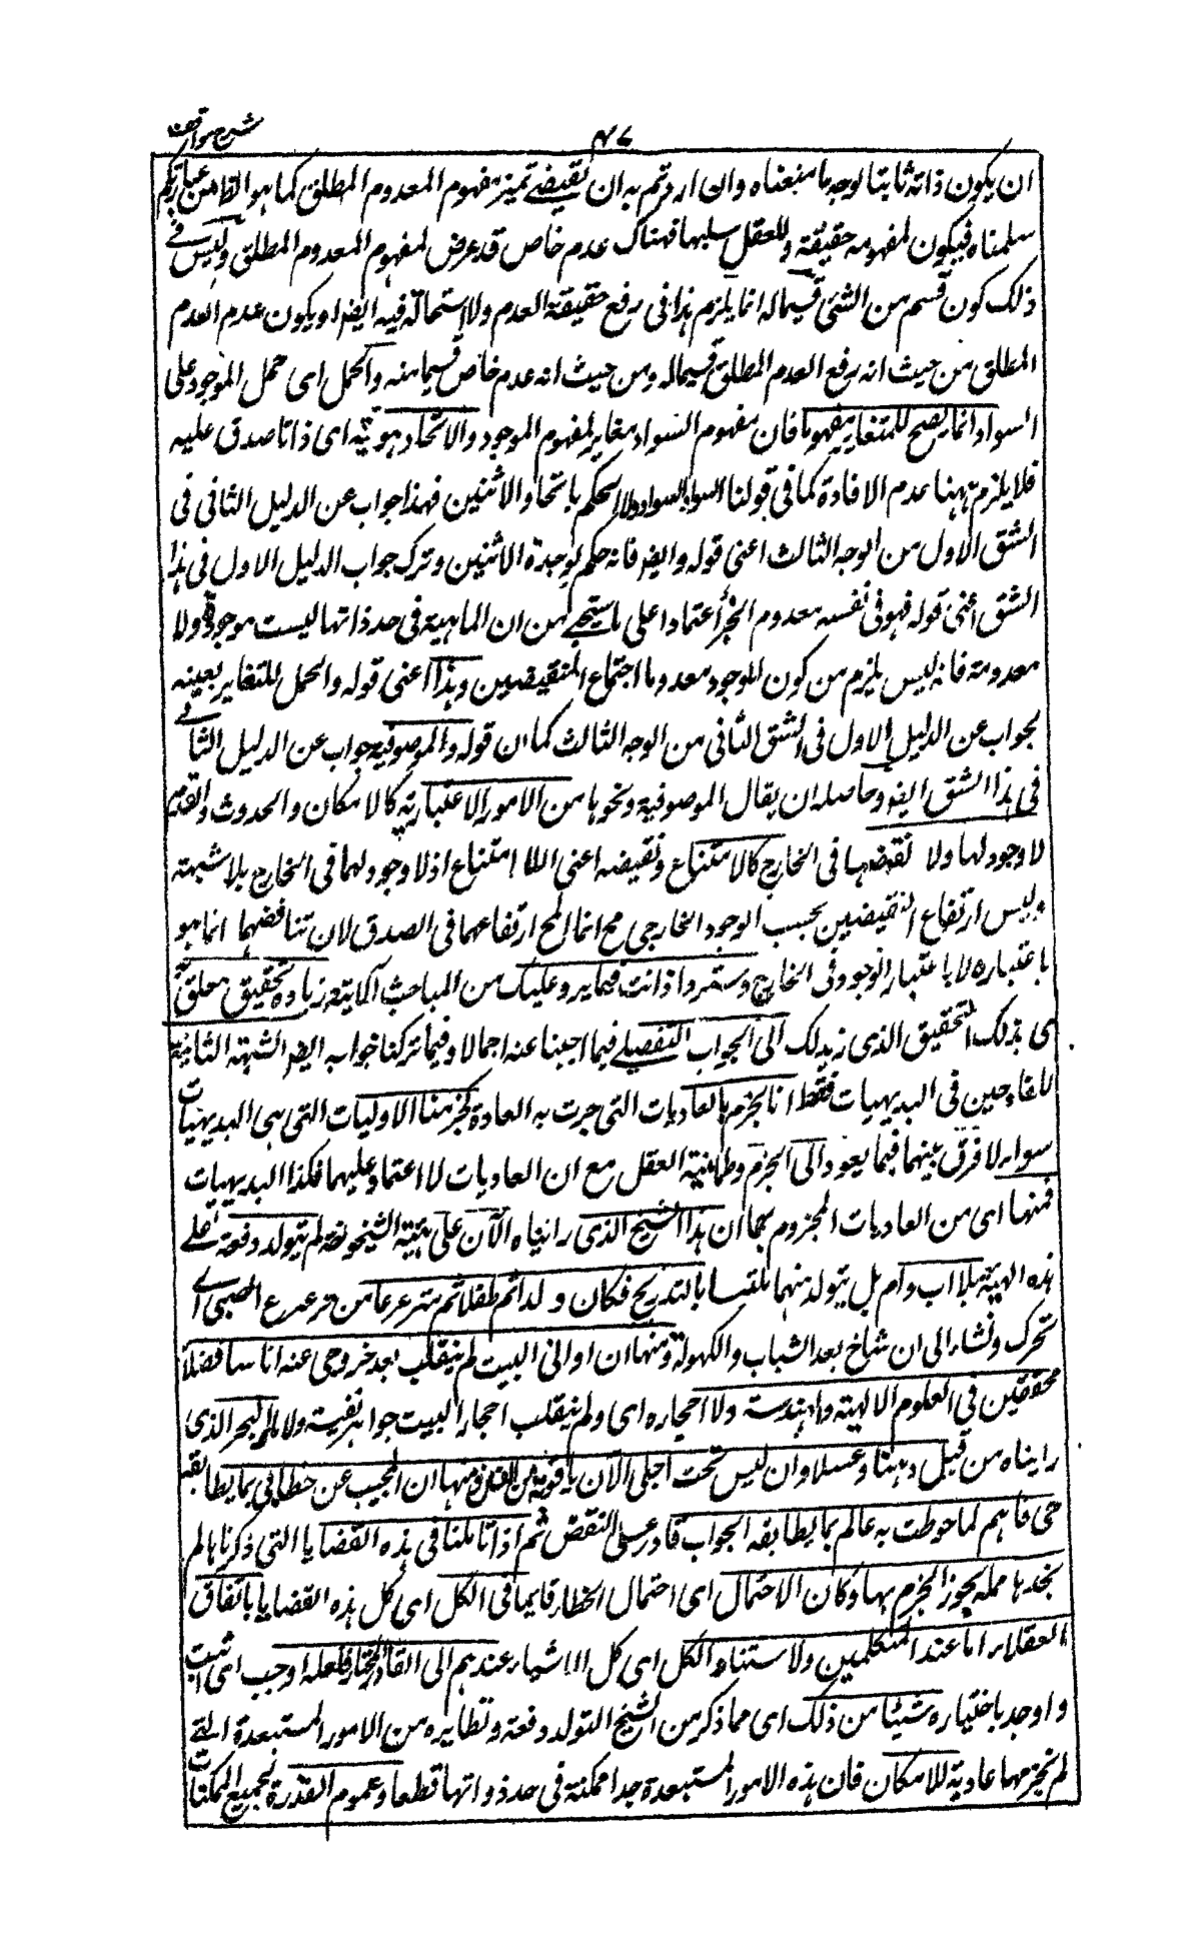 شرح مواقف
۴۷
ان يكون ذاته ثابتا لوجه ما منعناه وان اردتم به ان نقيضى تميز مفهوم المعدوم المطلق كما هو الظاهر من عبارتكم
سلمناه فيكون لمفهومه حقيقة وللعقل سلبها فهناك عدم خاص قد عرض لمفهوم المعدوم المطلق وليس فے
ذلك كون قسم من الشئ قسيما له انما يلزم هذا فى رفع حقيقة العدم ولا استحالة فيه ايضا ويكون عدم العدم
المطلق من حيث انه رفع العدم المطلق قسيما له ومن حيث انه عدم خاص قسما منه والحمل اى حمل الموجود على
السواد انما يصح للمتغاير مفهوما فان مفهوم السواد مغاير لمفهوم الموجود والاتحاد هوية اى ذاتا صدق عليه
فلا يلزم ههنا عدم الافادة كما فى قولنا السواد السواد ولا الحكم باتحاد الاثنين فهذا جواب عن الدليل الثانى فى
الشق الاول من الوجه الثالث اعنى قوله وايضا فانه حكم لوحدة الاثنين وترك جواب الدليل الاول فى هذا
الشق اعنى قوله فهو فى نفسه معدوم الخ اعتمادا على ما سيجئ من ان الماهية فى حد ذاتها ليست موجودة ولا
معدومة فانه ليس يلزم من كون الموجود معدوما اجتماع النقيضين وهذا اعنى قوله والحمل للتغاير بعينه
جواب عن الدليل الاول فى الشق الثانى من الوجه الثالث كما ان قوله والموصوفية جواب عن الدليل الثانے
فى هذا الشق ايضا وحاصله ان يقال الموصوفية ونحوها من الامور الاعتبارية كالامكان والحدوث والقدم
لا وجود لها ولا نقيضها فى الخارج كالامتناع ونقيضه اعنى اللا امتناع اذ لا وجود لهما فى الخارج بلا شبهة
وليس ارتفاع النقيضين بحسب الوجود الخارجى مح انما المح ارتفاعهما فى الصدق لان تناقضهما انما هو
باعتباره لا باعتبار الوجود فى الخارج وستمر واذ انت فيما يرد عليك من المباحث الآتية زيادة تحقيق معلق
ى بذلك التحقيق الذى نريدلك الى الجواب التفصيلے فيما اجبنا عنه اجمالا وفيما تركنا جوابه ايضا الشبهة الثانية
للقادحين فى البديهيات فقط انا نجزم بالعاديات التى جرت به العادة كجزمنا الاوليات التى هى البديهيات
سواء لا فرق بينهما فيما يعود الى الجزم وطمانينة العقل مع ان العاديات لا اعتماد عليهما فكذا البديهيات
فمنها اى من العاديات المجزوم بها ان هذا الشيخ الذى رايناه الآن على هيئة الشيخوخة لم يتولد دفعة علے
هذه الهيئة بلا اب وام بل يتولد منهما ملتبسا بالتدريج فكان ولدا ثم طفلا ثم مترعرعا من ترعرع الصبى اے
تحرك ونشاء الى ان شاخ بعد الشباب والكهولة ومنها ان اوانى البيت لم ينقلب بعد خروجى عنه اناسا فضلاء
محققين فى العلوم الالهية والهندسة ولا احجاره اى ولم ينقلب احجار البيت جواهر نفيسة ولا ماء البحر الذى
رايناه من قبل دهنا وعسلا وان ليس تحت رجلى الآن ياقوتة من الف منّ ومنها ان المجيب عن خطابى بما يطابقه
حى فاهم لما خوطب به عالم بما يطابقه الجواب قادر على النقض ثم اذا تاملنا فى هذه القضايا التى ذكرناها لم
نجدها مما يجوز الجزم بها وكان الاحتمال اى احتمال الخطاء قايما فى الكل اى كل هذه القضايا باتفاق
العقلاء اما عند المتكلمين ولاستناد الكل اى كل الاشياء عندهم الى القادر المختار فلعله اوجب اى اثبت
واوجد باختياره شيئا من ذلك اى مما ذكر من الشيخ التولد دفعة ونظايره من الامور المستبعدة التے
لم نجزمها عادية للامكان فان هذه الامور المستبعدة جدا ممكنة فى حد ذواتها قطعا وعموم القدرة لجميع الممكنات